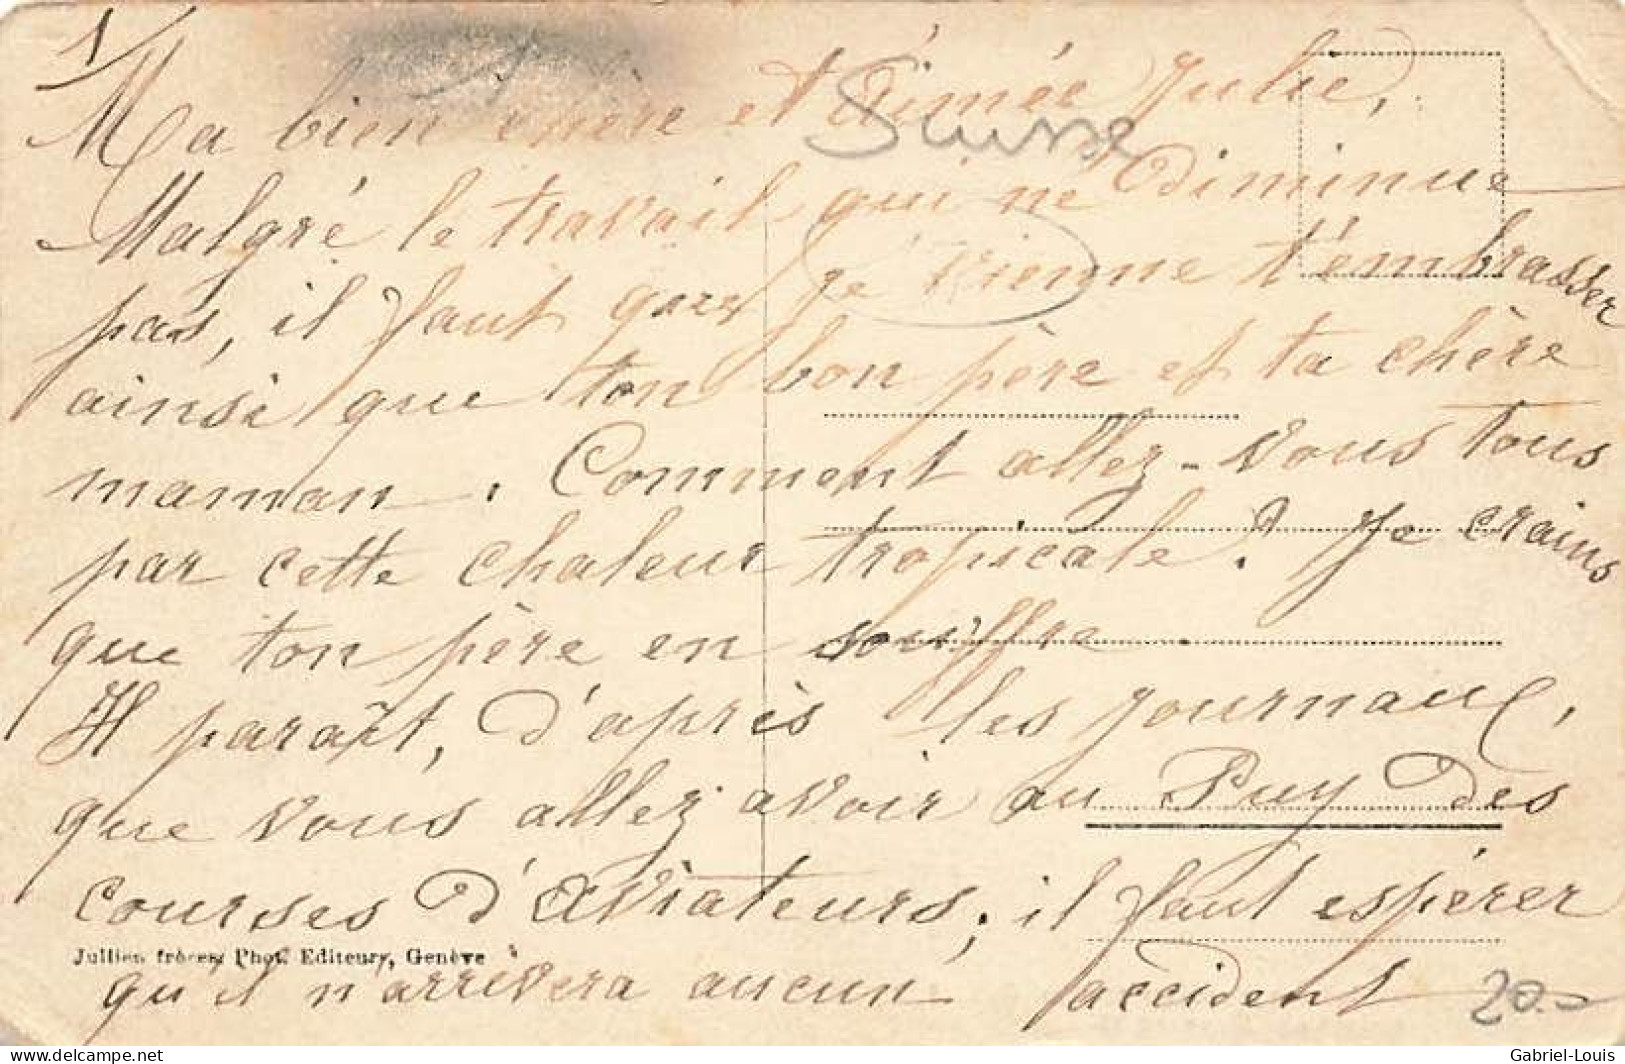 1/
Ma bien chère et aimée Julie,
Suisse
Malgré le travail qui ne diminue
pas, il faut que je vienne t'embrasser
ainsi que ton bon père et ta chère
maman. Comment allez-vous tous
par cette chaleur tropicale? Je crains
que ton père en souffre.
Il paraît, d'après les journaux,
que vous allez avoir au Puy des
courses d'aviateurs; il faut espérer
Jullien frères, Phot. Editeurs, Genève
qu'il n'arrivera aucun accident
20.-
delcampe.net
Gabriel-Louis